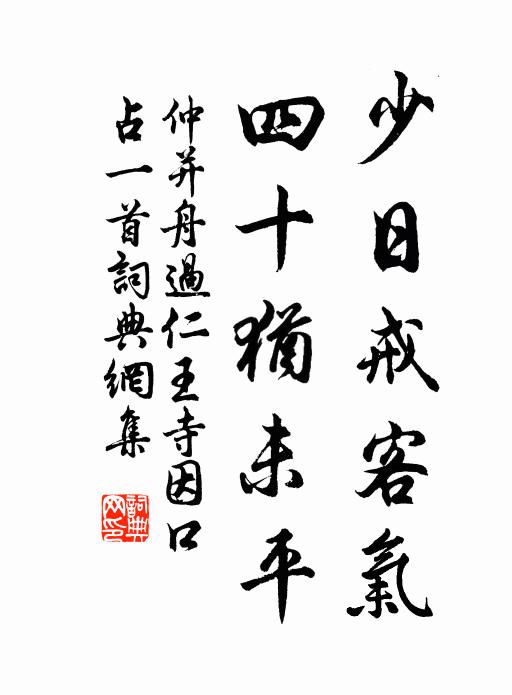 少日戒客氣
四十猶未平
仲并舟過仁王寺因口
占一首詞典網集
詞典
网印